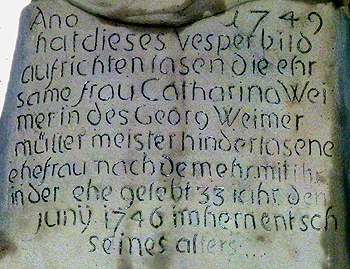 Ano 1749
hat dieses vesperbild
aufrichten lasen die ehr
same frau Catharina Wei
merin des Georg Weimer
müller meister hinderlasene
ehefrau nach dem ehr mit ihr
in der ehe gelebt 33 iahr den
junÿ 1746 im hern entsch
seines alters